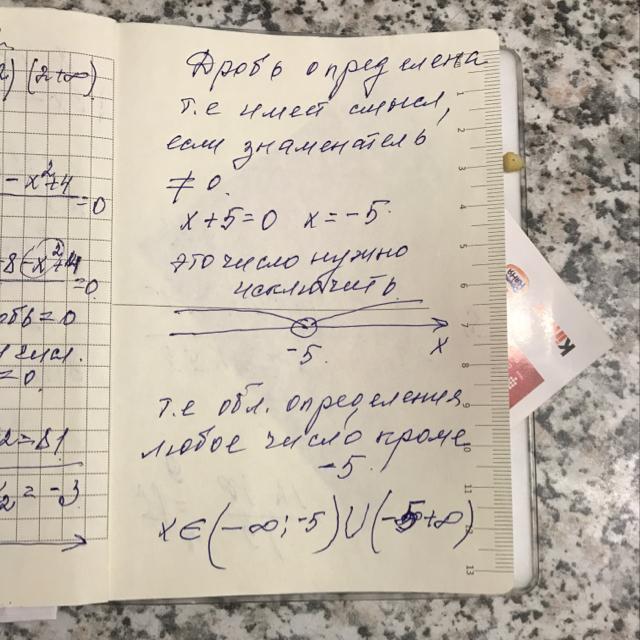 2) (2+∞)
- x²+4
= 0
-8-x²+4
= 0
обь = 0
числ.
= 0
2 = 81
2 = -3
Дробь определена
т.е имеет смысл,
если знаменатель
≠ 0.
x+5=0 x=-5.
это число нужно
исключить
-5. x
т.е обл. определения
любое число кроме
-5.
x∈(-∞;-5)∪(-5+∞)
1
2
3
4
5
6
7
8
9
10
11
12
13